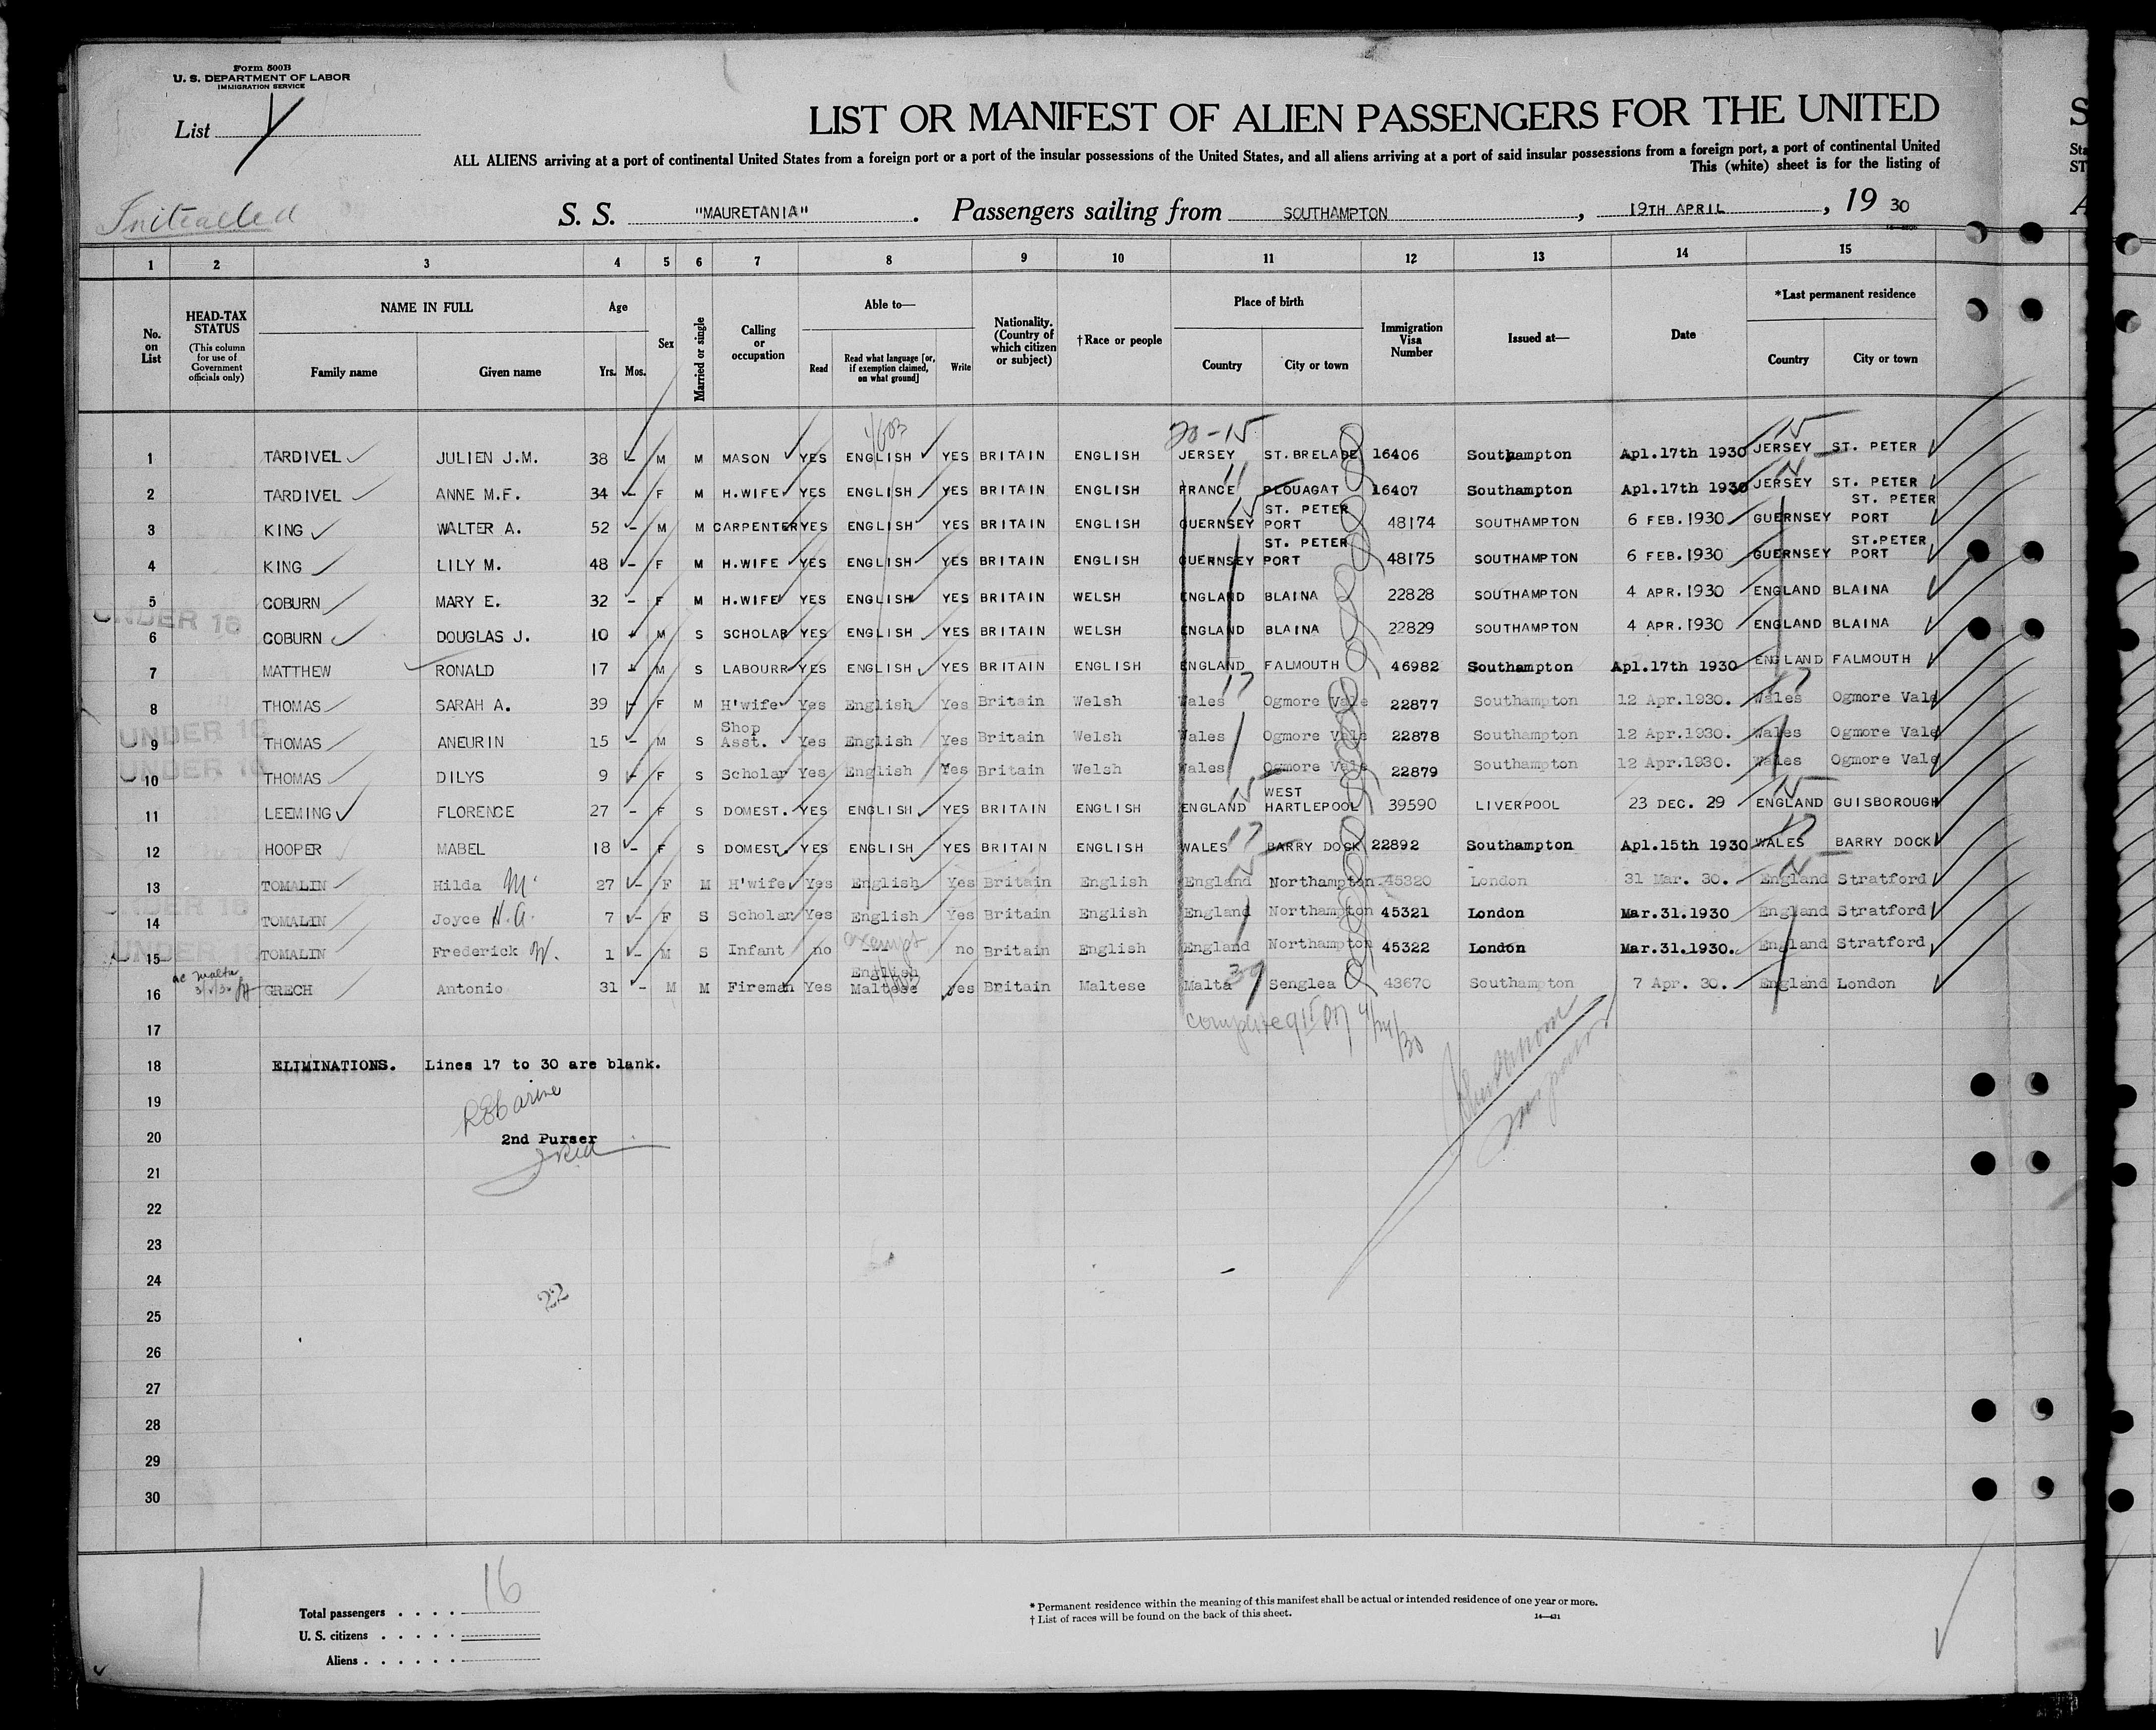 Form 500B
U. S. DEPARTMENT OF LABOR
IMMIGRATION SERVICE
List
LIST OR MANIFEST OF ALIEN PASSENGERS FOR THE UNITED
ALL ALIENS arriving at a port of continental United States from a foreign port or a port of the insular possessions of the United States, and all aliens arriving at a port of said insular possessions from a foreign port, a port of continental United
This (white) sheet is for the listing of
Initialled
S. S. "MAURETANIA". Passengers sailing from SOUTHAMPTON, 19TH APRIL, 19 30
1 2 3 4 5 6 7 8 9 10 11 12 13 14 15
No. on List
HEAD-TAX STATUS (This column for use of Government officials only)
NAME IN FULL Family name Given name
Age Yrs. Mos.
Sex
Married or single
Calling or occupation
Able to— Read Read what language [or, if exemption claimed, on what ground] Write
Nationality. (Country of which citizen or subject)
†Race or people
Place of birth Country City or town
Immigration Visa Number
Issued at—
Date
*Last permanent residence Country City or town
20-15
1 TARDIVEL JULIEN J.M. 38 - M M MASON YES ENGLISH YES BRITAIN ENGLISH JERSEY ST.BRELADE 16406 Southampton Apl.17th 1930 JERSEY ST. PETER
2 TARDIVEL ANNE M.F. 34 - F M H.WIFE YES ENGLISH YES BRITAIN ENGLISH FRANCE PLOUAGAT 16407 Southampton Apl.17th 1930 JERSEY ST. PETER
3 KING WALTER A. 52 - M M CARPENTER YES ENGLISH YES BRITAIN ENGLISH GUERNSEY ST. PETER PORT 48174 SOUTHAMPTON 6 FEB.1930 GUERNSEY ST. PETER PORT
4 KING LILY M. 48 - F M H.WIFE YES ENGLISH YES BRITAIN ENGLISH GUERNSEY ST. PETER PORT 48175 SOUTHAMPTON 6 FEB.1930 GUERNSEY ST.PETER PORT
5 COBURN MARY E. 32 - F M H.WIFE YES ENGLISH YES BRITAIN WELSH ENGLAND BLAINA 22828 SOUTHAMPTON 4 APR.1930 ENGLAND BLAINA
UNDER 16
6 COBURN DOUGLAS J. 10 - M S SCHOLAR YES ENGLISH YES BRITAIN WELSH ENGLAND BLAINA 22829 SOUTHAMPTON 4 APR.1930 ENGLAND BLAINA
7 MATTHEW RONALD 17 - M S LABOURR YES ENGLISH YES BRITAIN ENGLISH ENGLAND FALMOUTH 46982 Southampton Apl.17th 1930 ENGLAND FALMOUTH
8 THOMAS SARAH A. 39 - F M H'wife Yes English Yes Britain Welsh Wales Ogmore Vale 22877 Southampton 12 Apr.1930. Wales Ogmore Vale
UNDER 16
9 THOMAS ANEURIN 15 - M S Shop Asst. Yes English Yes Britain Welsh Wales Ogmore Vale 22878 Southampton 12 Apr.1930. Wales Ogmore Vale
UNDER 16
10 THOMAS DILYS 9 - F S Scholar Yes English Yes Britain Welsh Wales Ogmore Vale 22879 Southampton 12 Apr.1930. Wales Ogmore Vale
11 LEEMING FLORENCE 27 - F S DOMEST. YES ENGLISH YES BRITAIN ENGLISH ENGLAND WEST HARTLEPOOL 39590 LIVERPOOL 23 DEC. 29 ENGLAND GUISBOROUGH
12 HOOPER MABEL 18 - F S DOMEST. YES ENGLISH YES BRITAIN ENGLISH WALES BARRY DOCK 22892 Southampton Apl.15th 1930 WALES BARRY DOCK
13 TOMALIN Hilda M. 27 - F M H'wife Yes English Yes Britain English England Northampton 45320 London 31 Mar. 30. England Stratford
UNDER 16
14 TOMALIN Joyce H.A. 7 - F S Scholar Yes English Yes Britain English England Northampton 45321 London Mar.31.1930 England Stratford
UNDER 16
15 TOMALIN Frederick W. 1 - M S Infant no exempt no Britain English England Northampton 45322 London Mar.31.1930. England Stratford
16 GRECH Antonio 31 - M M Fireman Yes English Maltese yes Britain Maltese Malta Senglea 43670 Southampton 7 Apr. 30. England London
17
18 ELIMINATIONS. Lines 17 to 30 are blank.
19
20 2nd Purser
21
22
23
24
22
25
26
27
28
29
30
16
Total passengers
U. S. citizens
Aliens
* Permanent residence within the meaning of this manifest shall be actual or intended residence of one year or more.
† List of races will be found on the back of this sheet.